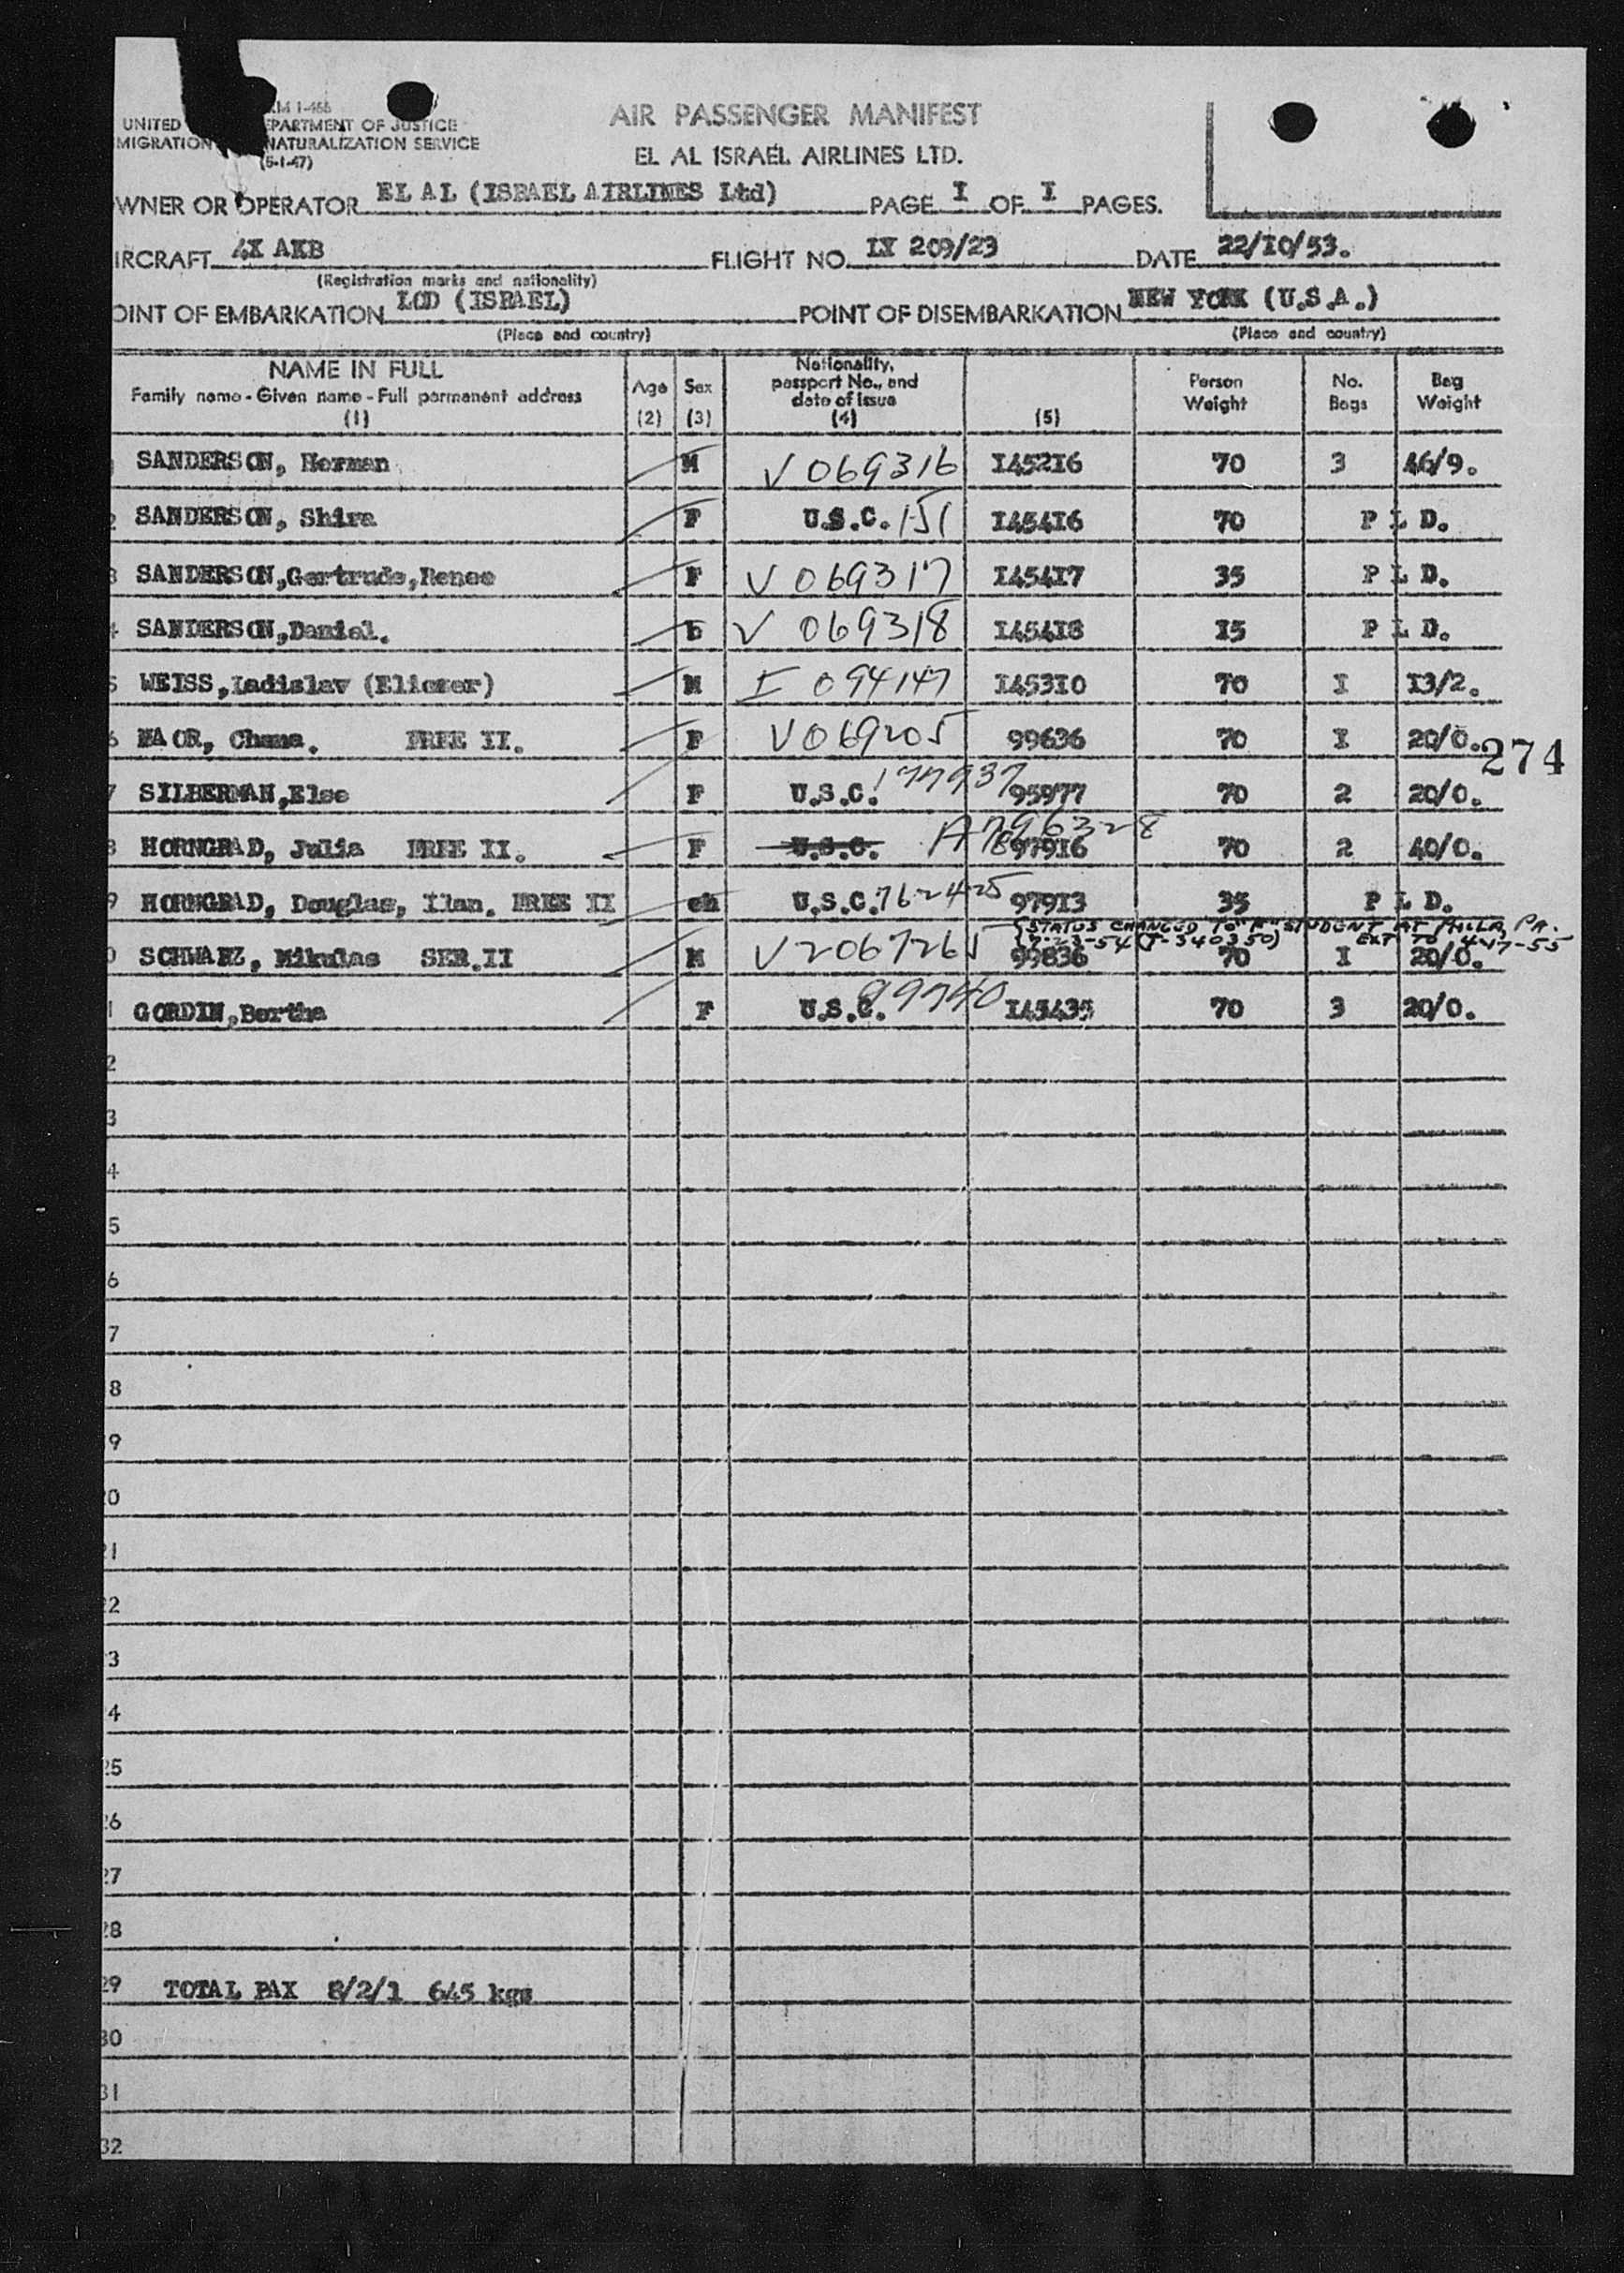 RM I-466
UNITED EPARTMENT OF JUSTICE
MIGRATION NATURALIZATION SERVICE
(5-1-47)
AIR PASSENGER MANIFEST
EL AL ISRAEL AIRLINES LTD.
WNER OR OPERATOR EL AL (ISRAEL AIRLINES Ltd) PAGE I OF I PAGES.
IRCRAFT 4X AKB FLIGHT NO. IX 209/23 DATE 22/I0/53.
(Registration marks and nationality)
OINT OF EMBARKATION LOD (ISRAEL) POINT OF DISEMBARKATION NEW YORK (U.S.A.)
(Place and country) (Place and country)
NAME IN FULL
Family name - Given name - Full permanent address
(1)
Age
(2)
Sex
(3)
Nationality,
passport No., and
date of issue
(4)
(5)
Person
Weight
No.
Bags
Bag
Weight
SANDERSON, Herman M V 069316 I452I6 70 3 46/9.
2 SANDERSON, Shira F U.S.C. 151 I454I6 70 P L D.
3 SANDERSON,Gertrude,Renee F V 069317 I454I7 35 P L D.
4 SANDERSON,Daniel. b V 069318 I454I8 I5 P L D.
5 WEISS,Ladislav (Eliezer) M I 094147 I453I0 70 I I3/2.
6 MAOR, Chana. FREE II. F V 069205 99636 70 I 20/0.
274
7 SILBERMAN,Else F U.S.C. 177937 95977 70 2 20/0.
8 HORNGRAD, Julia FREE II. F U.S.C. A7896328 979I6 70 2 40/0.
9 HORNGRAD, Douglas, Ilan. FREE II ch U.S.C. 762425 979I3 35 P L D.
STATUS CHANGED TO "F" STUDENT AT PHILA, PA.
(7-23-54 (T-340350) EXT TO 4-17-55
0 SCHWARZ, Mikulas SER.II M V 2067265 99836 70 I 20/0.
1 GORDIN,Bertha F U.S.C. 99740 I45435 70 3 20/0.
2
3
4
5
6
7
8
9
20
21
22
23
4
25
26
27
28
29 TOTAL PAX 8/2/1 645 kgs
30
31
32